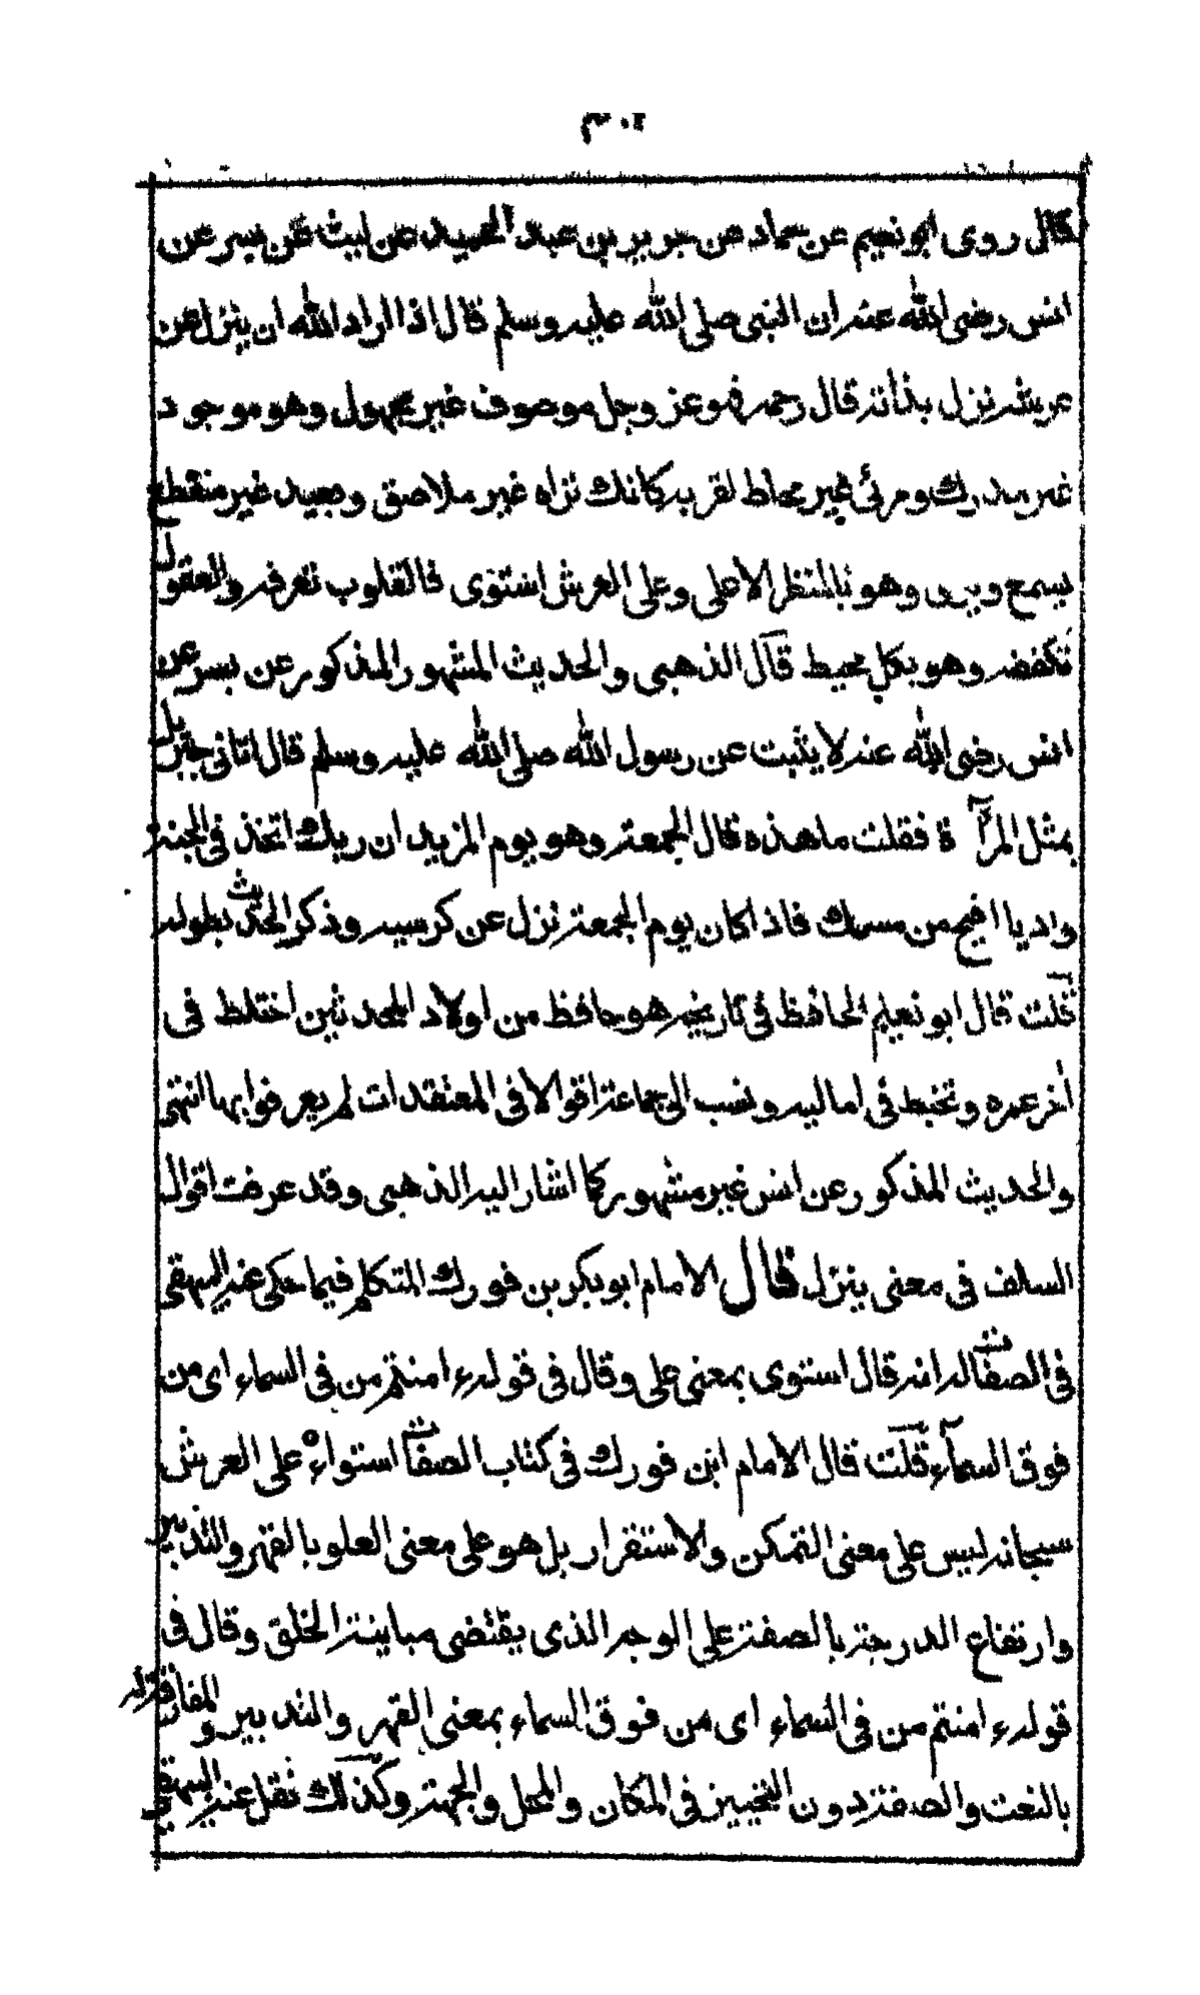 ٣٠٢
قال روى ابو نعيم عن حماد عن جرير بن عبد الحميد عن ليث عن بسر عن
انس رضى الله عنه ان النبى صلى الله عليه وسلم قال اذا اراد الله ان ينزل عن
عرشه نزل بذاته قال رحمه فهو عز وجل موصوف غير مجهول وهو موجود
غير مدرك ومرئى غير محاط لقربه كانك تراه غير ملاصق وبعيد غير منقطع
يسمع ويرى وهو بالمنظر الاعلى وعلى العرش استوى فالقلوب تعرفه والعقول
تكفضه وهو بكل محيط قال الذهبى والحديث المشهور المذكور عن بسر عن
انس رضى الله عنه لا يثبت عن رسول الله صلى الله عليه وسلم قال اتانى جبريل
بمثل المرآة فقلت ما هذه قال الجمعة وهو يوم المزيد ان ربك اتخذ فى الجنة
واديا افيح من مسك فاذا كان يوم الجمعة نزل عن كرسيه وذكر الحديث بطوله
قلت قال ابو نعيم الحافظ فى تاريخه هو حافظ من اولاد المحدثين اختلط فى
آخر عمره وتخبط فى اماليه ونسب الى جماعة اقوالا فى المعتقدات لم يعرفوا بها انتهى
والحديث المذكور عن انس غير مشهور كما اشار اليه الذهبى وقد عرفت اقوال
السلف فى معنى ينزل قال الامام ابو بكر بن فورك المتكلم فيما حكى عنه البيهقى
فى الصفات له انه قال استوى بمعنى على وقال فى قوله ء امنتم من فى السماء اى من
فوق السمآء قلت قال الامام ابن فورك فى كتاب الصفات استواءه على العرش
سبحانه ليس على معنى التمكن والاستقرار بل هو على معنى العلو بالقهر والتدبير
وارتفاع الدرجة بالصفة على الوجه الذى يقتضى مباينة الخلق وقال فى
قوله ء امنتم من فى السماء اى من فوق السماء بمعنى القهر والتدبير والمفارقة له
بالنعت والصفة دون التحييز فى المكان والمحل والجهة وكذلك نقل عنه البيهقى